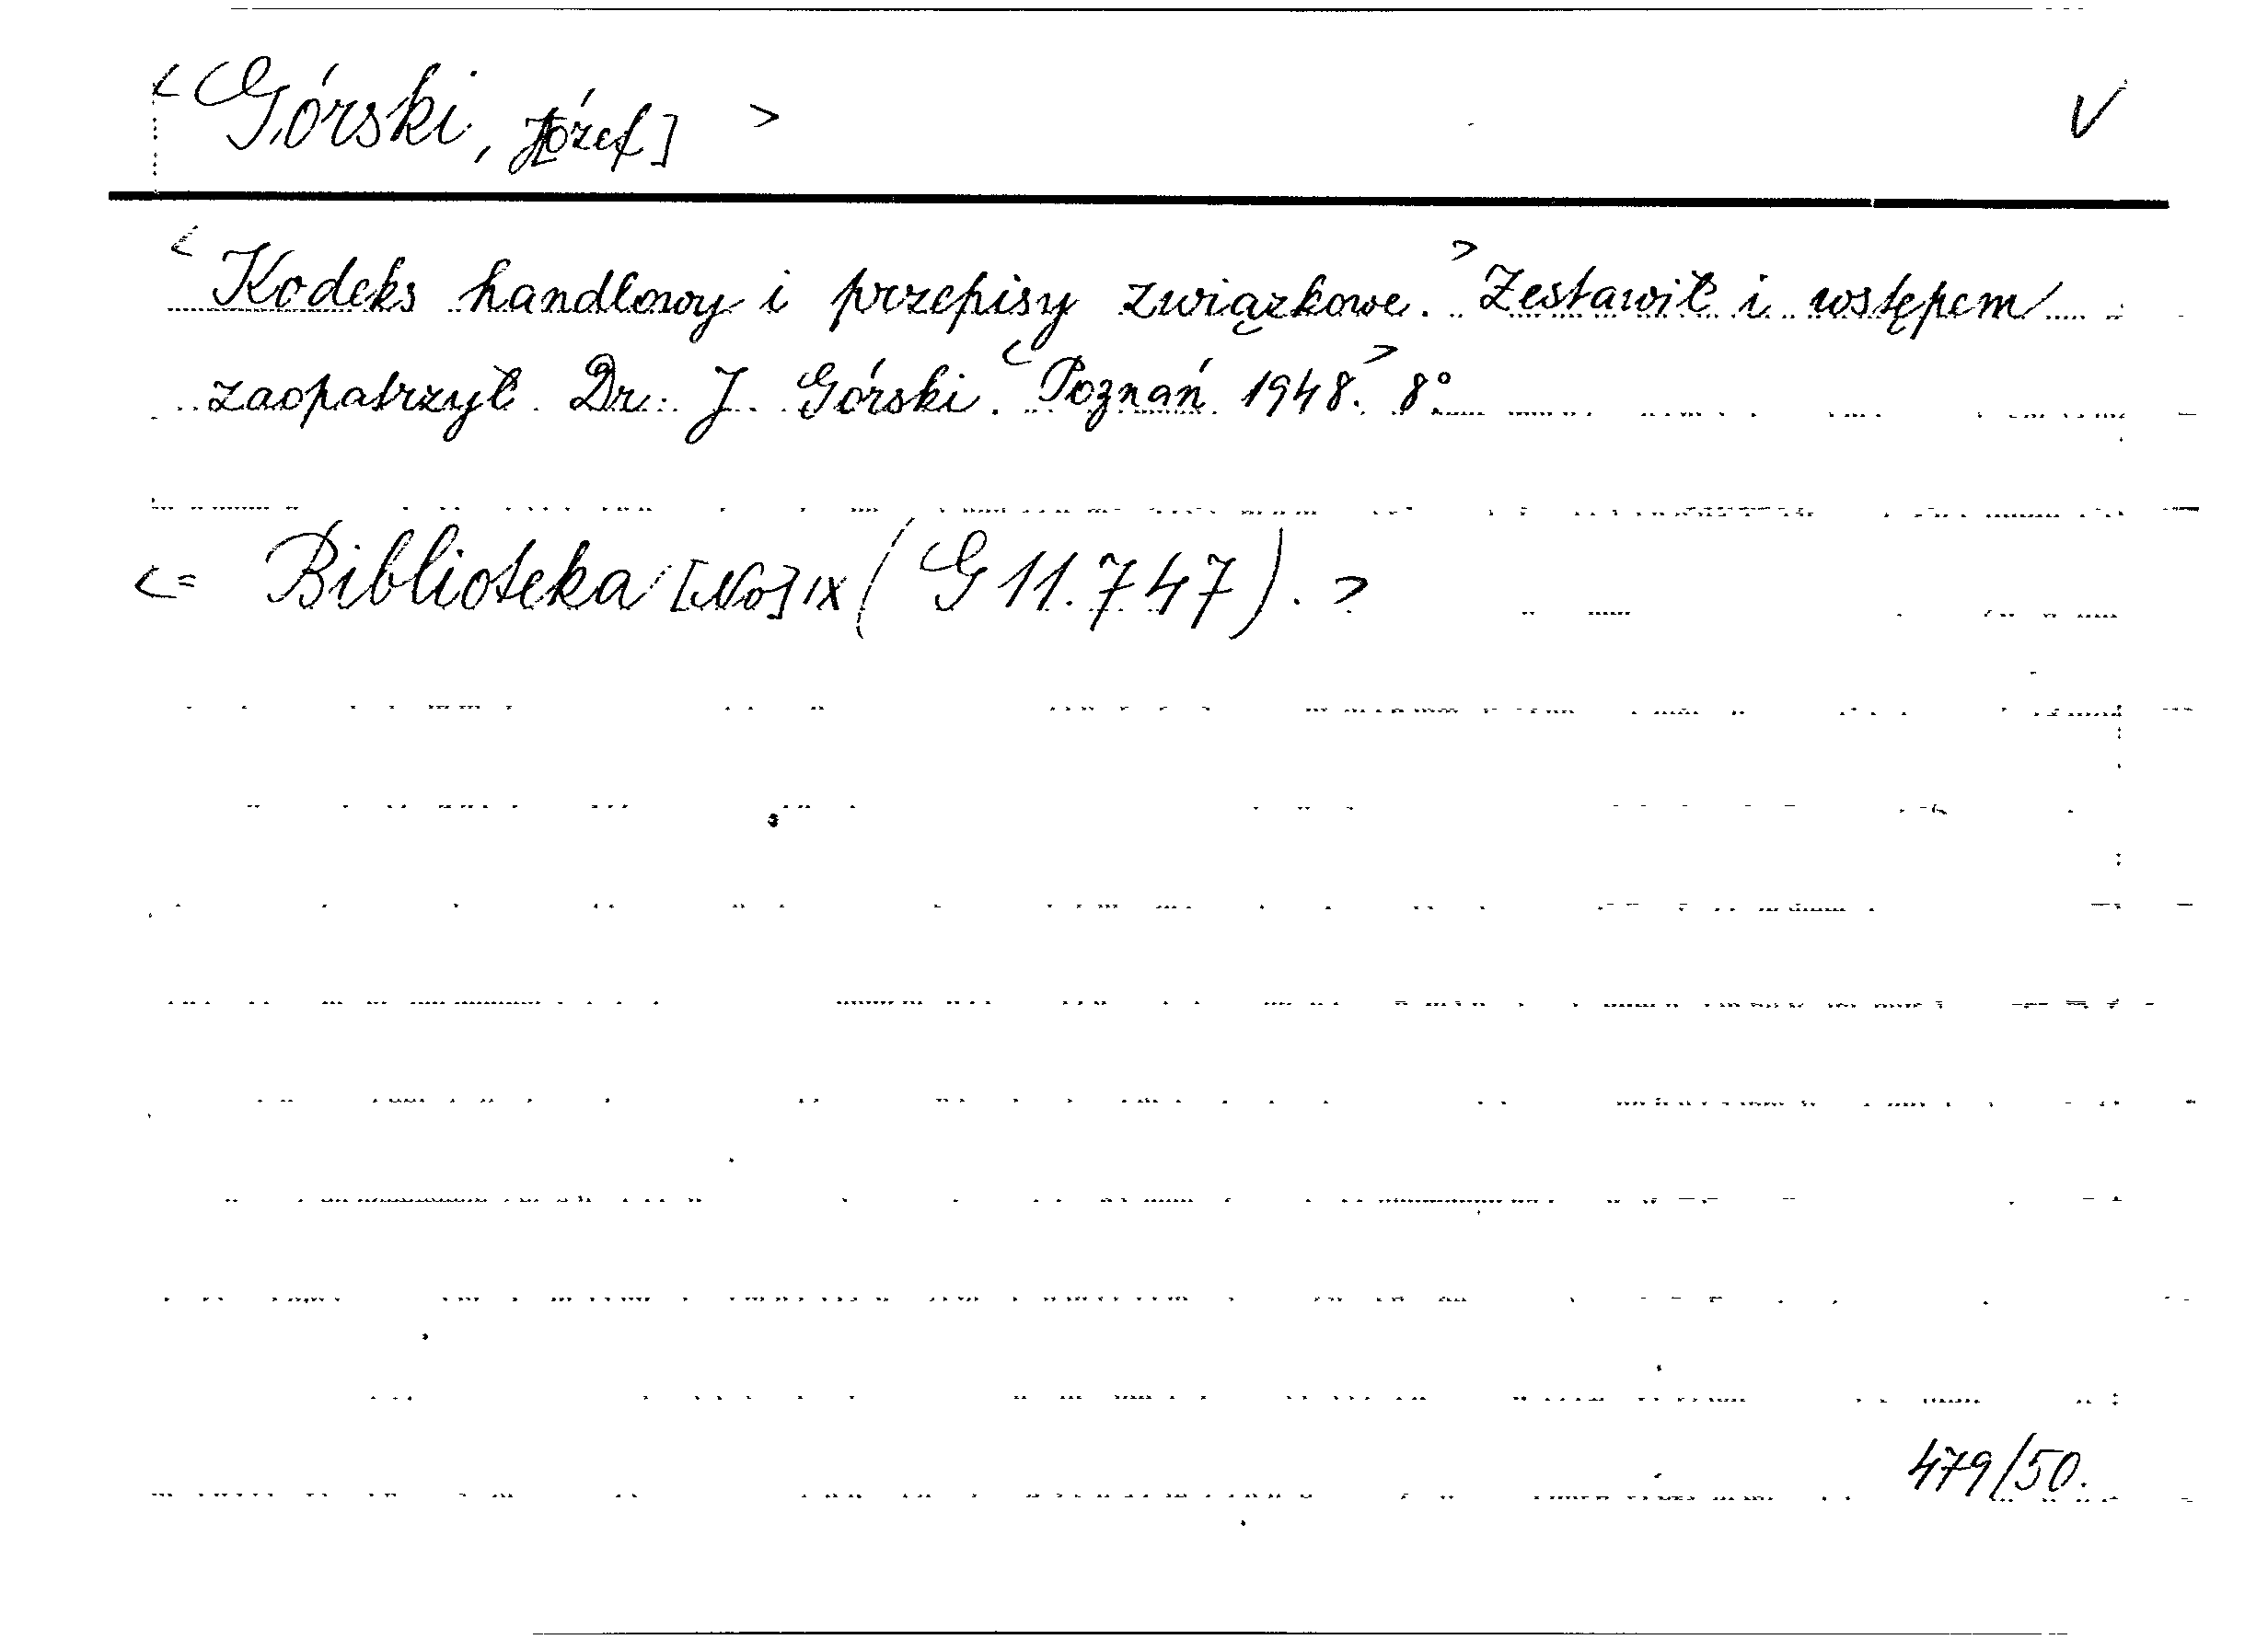 <Górski, J[ózef]> V
<Kodeks handlowy i przepisy związkowe.> Zestawił i wstępem
zaopatrzył Dr. J. Górski. <Poznań 1948.> 8°
<= Biblioteka [No] IX (G 11.747).>
479/50.